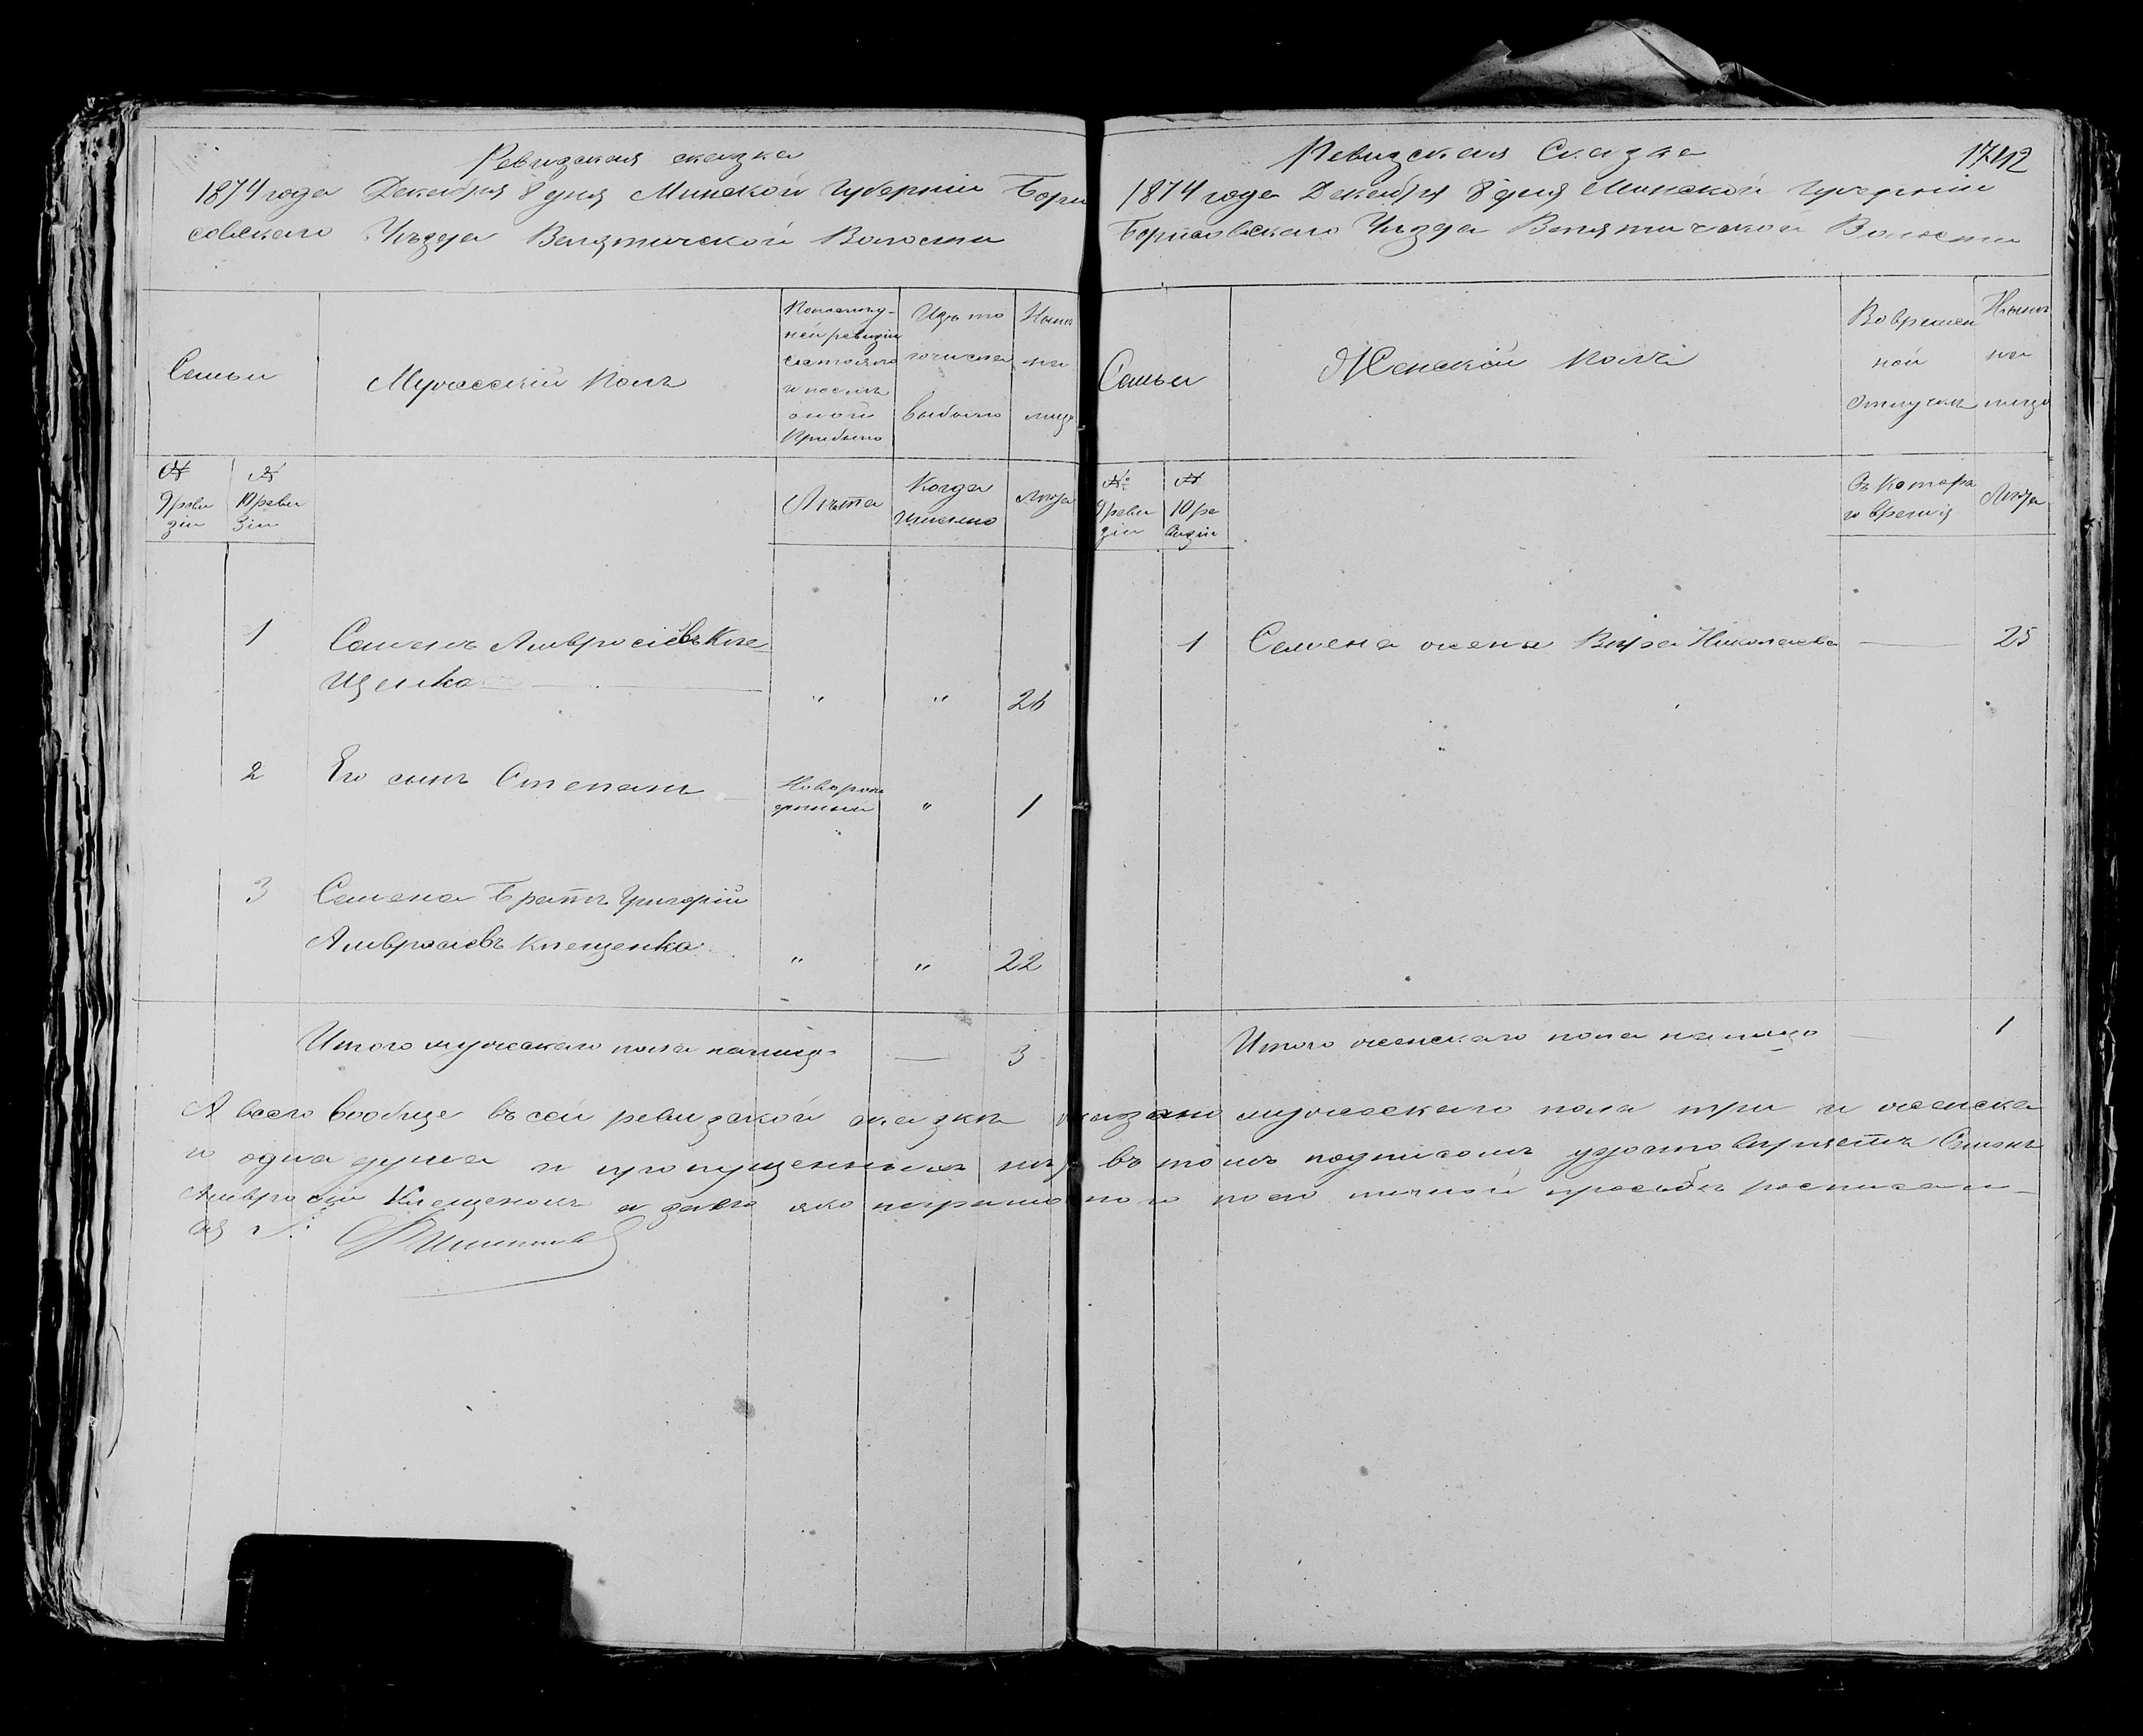 Ревизская сказка
1874 года Декабря 8 дня Минской Губерніи Бори
совскаго Уѣзда Велятичской Волости
Семьи
Мужескій полъ
По послѣд-
ней ревизіи
состояло
и послѣ
оной
прибыло
Изъ то
го числа
выбыло
Нынѣ
на
лицо
№
9 реви
зіи
№
10 реви
зіи
Лѣта
Когда
именно
Лѣта
1 Семенъ Амвросіевъ Кле
щенко " " 26
2 Его сынъ Степанъ Новорож
денный " 1
3 Семена Братъ Григорій
Амвросіевъ Клещенко " " 22
Итого мужескаго пола налицо — 3
Ревизская Сказка 1742
1874 года Декабря 8 дня Минской Губерніи
Борисовскаго Уѣзда Велятичской Волости
Семьи
Женскій полъ
Во времен
ной
отлучкѣ
Нынѣ
на
лицо
№
9 реви
зіи
№
10 ре
визіи
Съ котора
го времія
Лѣта
1 Семена жена Вѣра Николаева — 25
Итого женскаго пола налицо — 1
А всего вообще въ сей ревизской сказкѣ показано мужескаго пола три и женска
го одна душа и пропущенныхъ нѣтъ въ томъ подписомъ удостовѣряетъ Семенъ
Амвросіи Клещенокъ а за его яко неграмотного по его личной просьбѣ росписал
ся